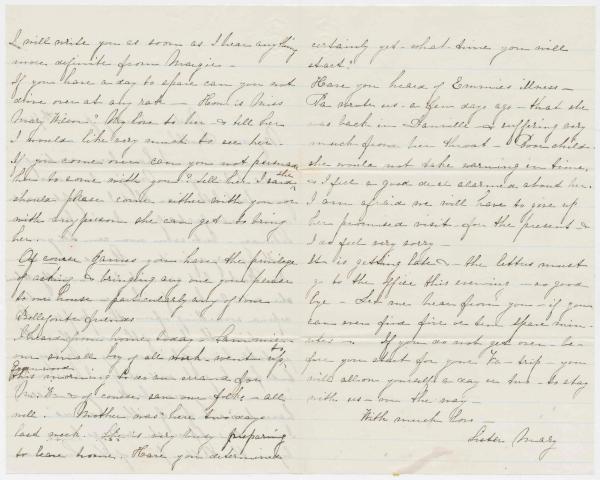 I will write you as soon as I hear anything
more definite from Maggie -
If you have a day to spare can you not
drive over at any rate - How is Miss
Mary Wilson? My love to her & tell her
I would like very much to see her.
If you come over can you not persuade
her to come with you? Tell her I said she
should please come - either with you or
with any person she can get - to bring
her.
Of course James you have the privilege
of asking & bringing any one you please
to our house - particularly any of our
Bellefonte friends
I heard from home today -
our small boy of all work - went up
this morning to do an errand for
& of course, saw our folks - all
well. Mother was here two days
last week. She is very busy preparing
to leave home. Have you determined
certainly yet - what time you will
start?
Have you heard of Emmie's illness -
Pa wrote us a few days ago - that she
was back in Danville & suffering very
much from her throat - Poor child
she would not take warning in time,
& I feel a good deal alarmed about her.
I am afraid we will have to give up
her promised visit - for the present &
I do feel very sorry -
It is getting late & - the letters must
go to the office this evening - so good
bye - Let me hear from you - if you
can even find five or ten spare min-
utes - If you do not get over - be-
fore you start for your Va - trip - you
will allow yourself a day or two - to stay
with us - on the way -
With much love -
Sister Mary